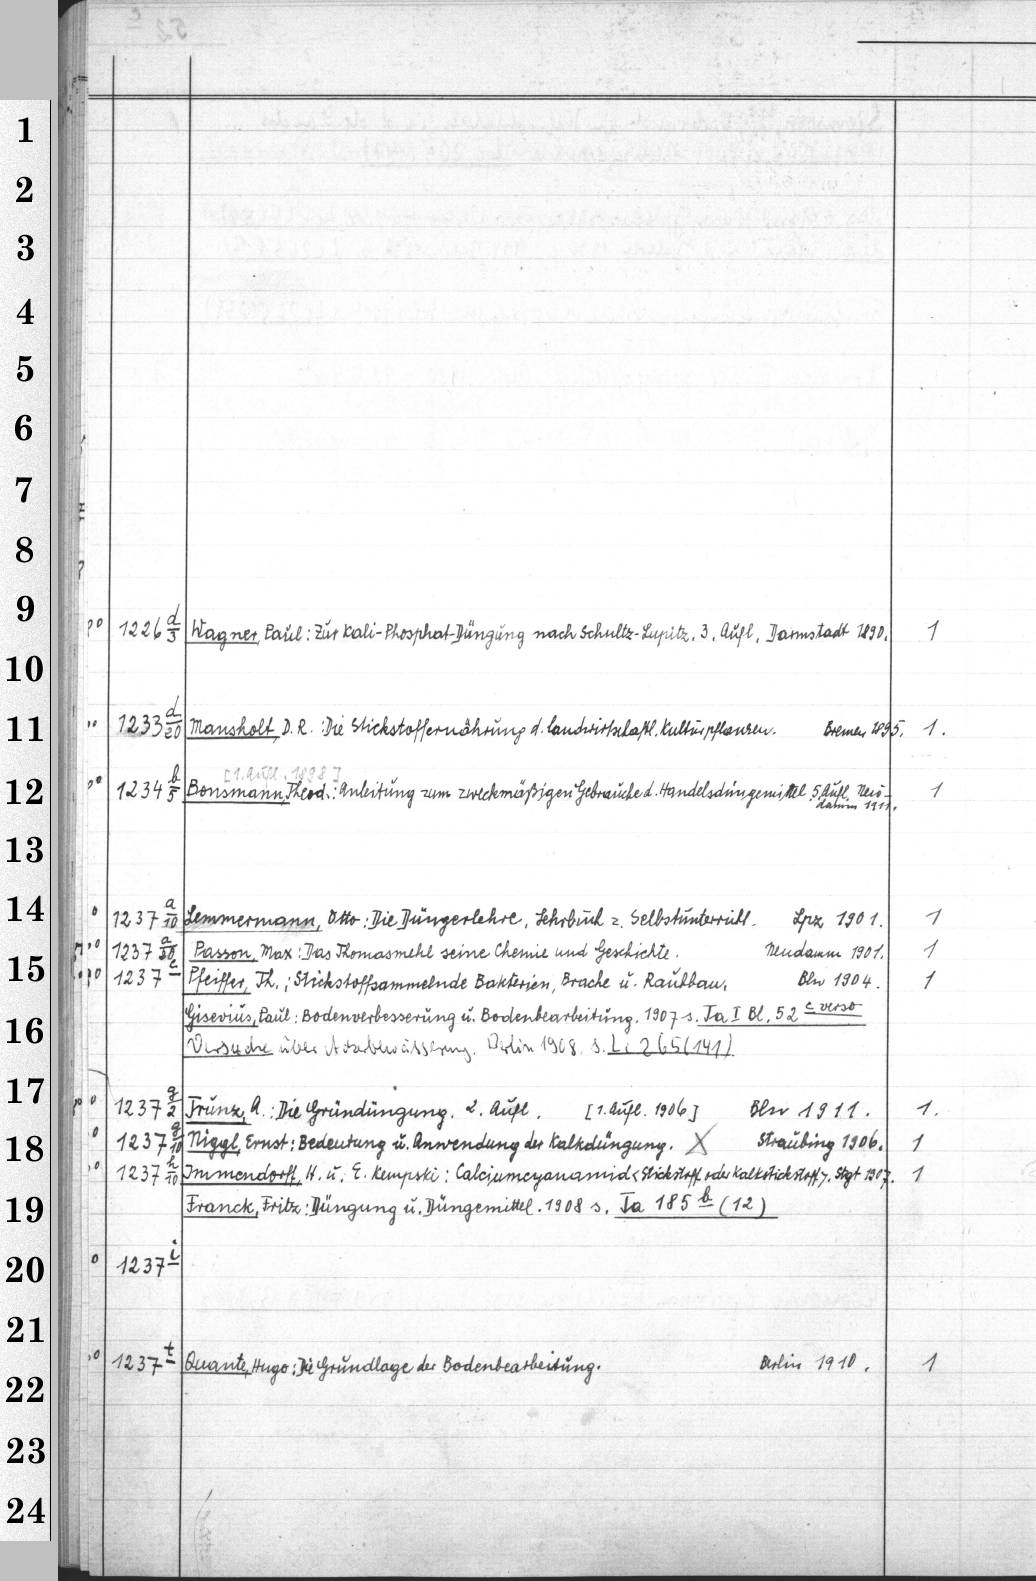 1
2
3
4
5
6
7
8
9
1226 d/3 Wagner, Paul: Zur Kali-Phosphat-Düngung nach Schultz-Lupitz. 3. Aufl. Darmstadt 1890. 1
10
11
1233 d/20 Mansholt, D. R.: Die Stickstoffernährung d. landwirtschaftl. Kulturpflanzen. Bremen 1895. 1.
[1. Aufl. 1898]
12
1234 b/5 Bonsmann, Theod.: Anleitung zum zweckmäßigen Gebrauche d. Handelsdüngemittel. 5. Aufl. Neu-
damm 1911. 1
13
14
1237 a/10 Lemmermann, Otto: Die Düngerlehre. Lehrbuch z. Selbstunterricht. Lpz 1901. 1
1237 a/50 Passon, Max: Das Thomasmehl seine Chemie und Geschichte. Neudamm 1901. 1
15
1237 c Pfeiffer, Th.: Stickstoffsammelnde Bakterien, Brache u. Raubbau. Bln 1904. 1
Gisevius, Paul: Bodenverbesserung u. Bodenbearbeitung. 1907 s. Ta I Bl. 52 c verso
16
Versuche über Ackerbewässerung. Berlin 1908. s. Li 265(141)
17
1237 g/2 Trunz, A.: Die Gründüngung. 2. Aufl. [1. Aufl. 1906] Bln 1911. 1.
18
1237 g/10 Niggl, Ernst: Bedeutung u. Anwendung der Kalkdüngung. X Straubing 1906. 1
1237 h/10 Immendorff, H. u. E. Kempski: Calciumcyanamid <Stickstoff oder Kalkstickstoff>. Stgt 1907. 1
19
Franck, Fritz: Düngung u. Düngemittel. 1908 s. Ta 185 b (12)
20
1237 i
21
1237 t Quante, Hugo: Die Grundlage der Bodenbearbeitung. Berlin 1910. 1
22
23
24